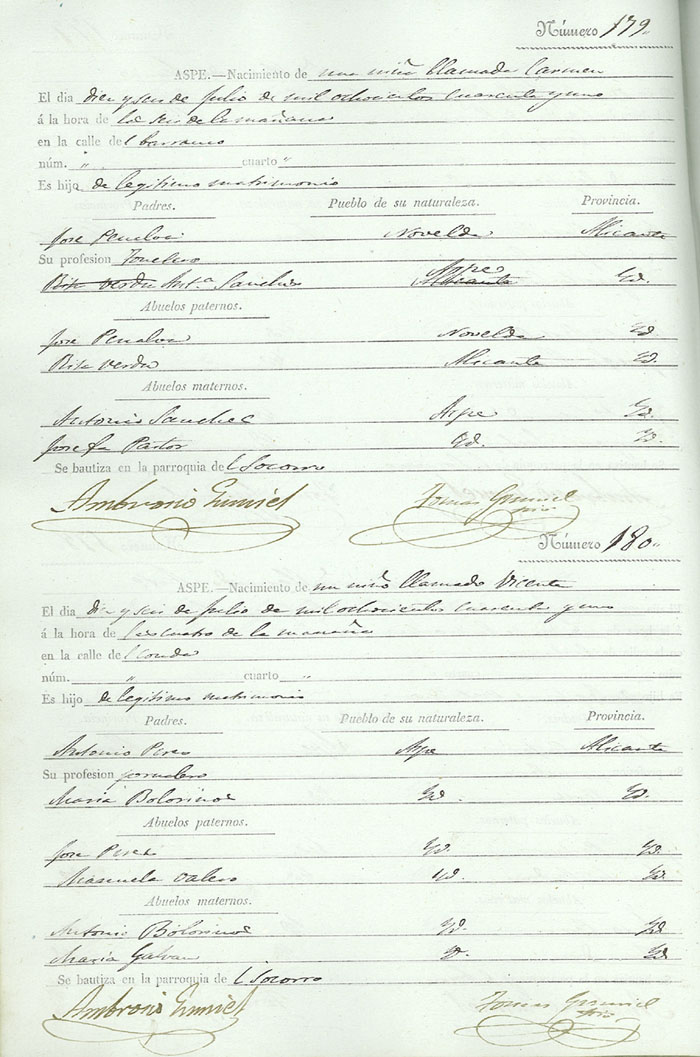 Número 179.
ASPE.—Nacimiento de una niña llamada Carmen
El dia diez y seis de julio de mil ochocientos cuarenta y uno
á la hora de las seis de la mañana
en la calle del barranco
núm. " cuarto "
Es hijo de legitimo matrimonio
Padres. Pueblo de su naturaleza. Provincia.
Jose Penalva Novelda Alicante
Su profesion Tonelero
Rita Verdu Ant.ª Sanchis Aspe Alicante Yd.
Abuelos paternos.
Jose Penalva Novelda Yd
Rita Verdu Alicante Yd.
Abuelos maternos.
Antonio Sanchez Aspe Yd.
Josefa Pastor Yd. Yd.
Se bautiza en la parroquia del Socorro
Ambrosio Gumiel Tomas Gumiel
srio
Número 180.
ASPE.—Nacimiento de un niño llamado Vicente
El dia diez y seis de julio de mil ochocientos cuarenta y uno
á la hora de las cuatro de la mañana
en la calle del conde
núm. " cuarto "
Es hijo de legitimo matrimonio
Padres. Pueblo de su naturaleza. Provincia.
Antonio Peres Aspe Alicante
Su profesion jornalero
Maria Bolorinos Yd. Yd.
Abuelos paternos.
Jose Peres Yd. Yd.
Manuela Valero Yd. Yd.
Abuelos maternos.
Antonio Bolorinos Yd. Yd.
Maria Galvan Yd. Yd.
Se bautiza en la parroquia del Socorro
Ambrosio Gumiel Tomas Gumiel
srio